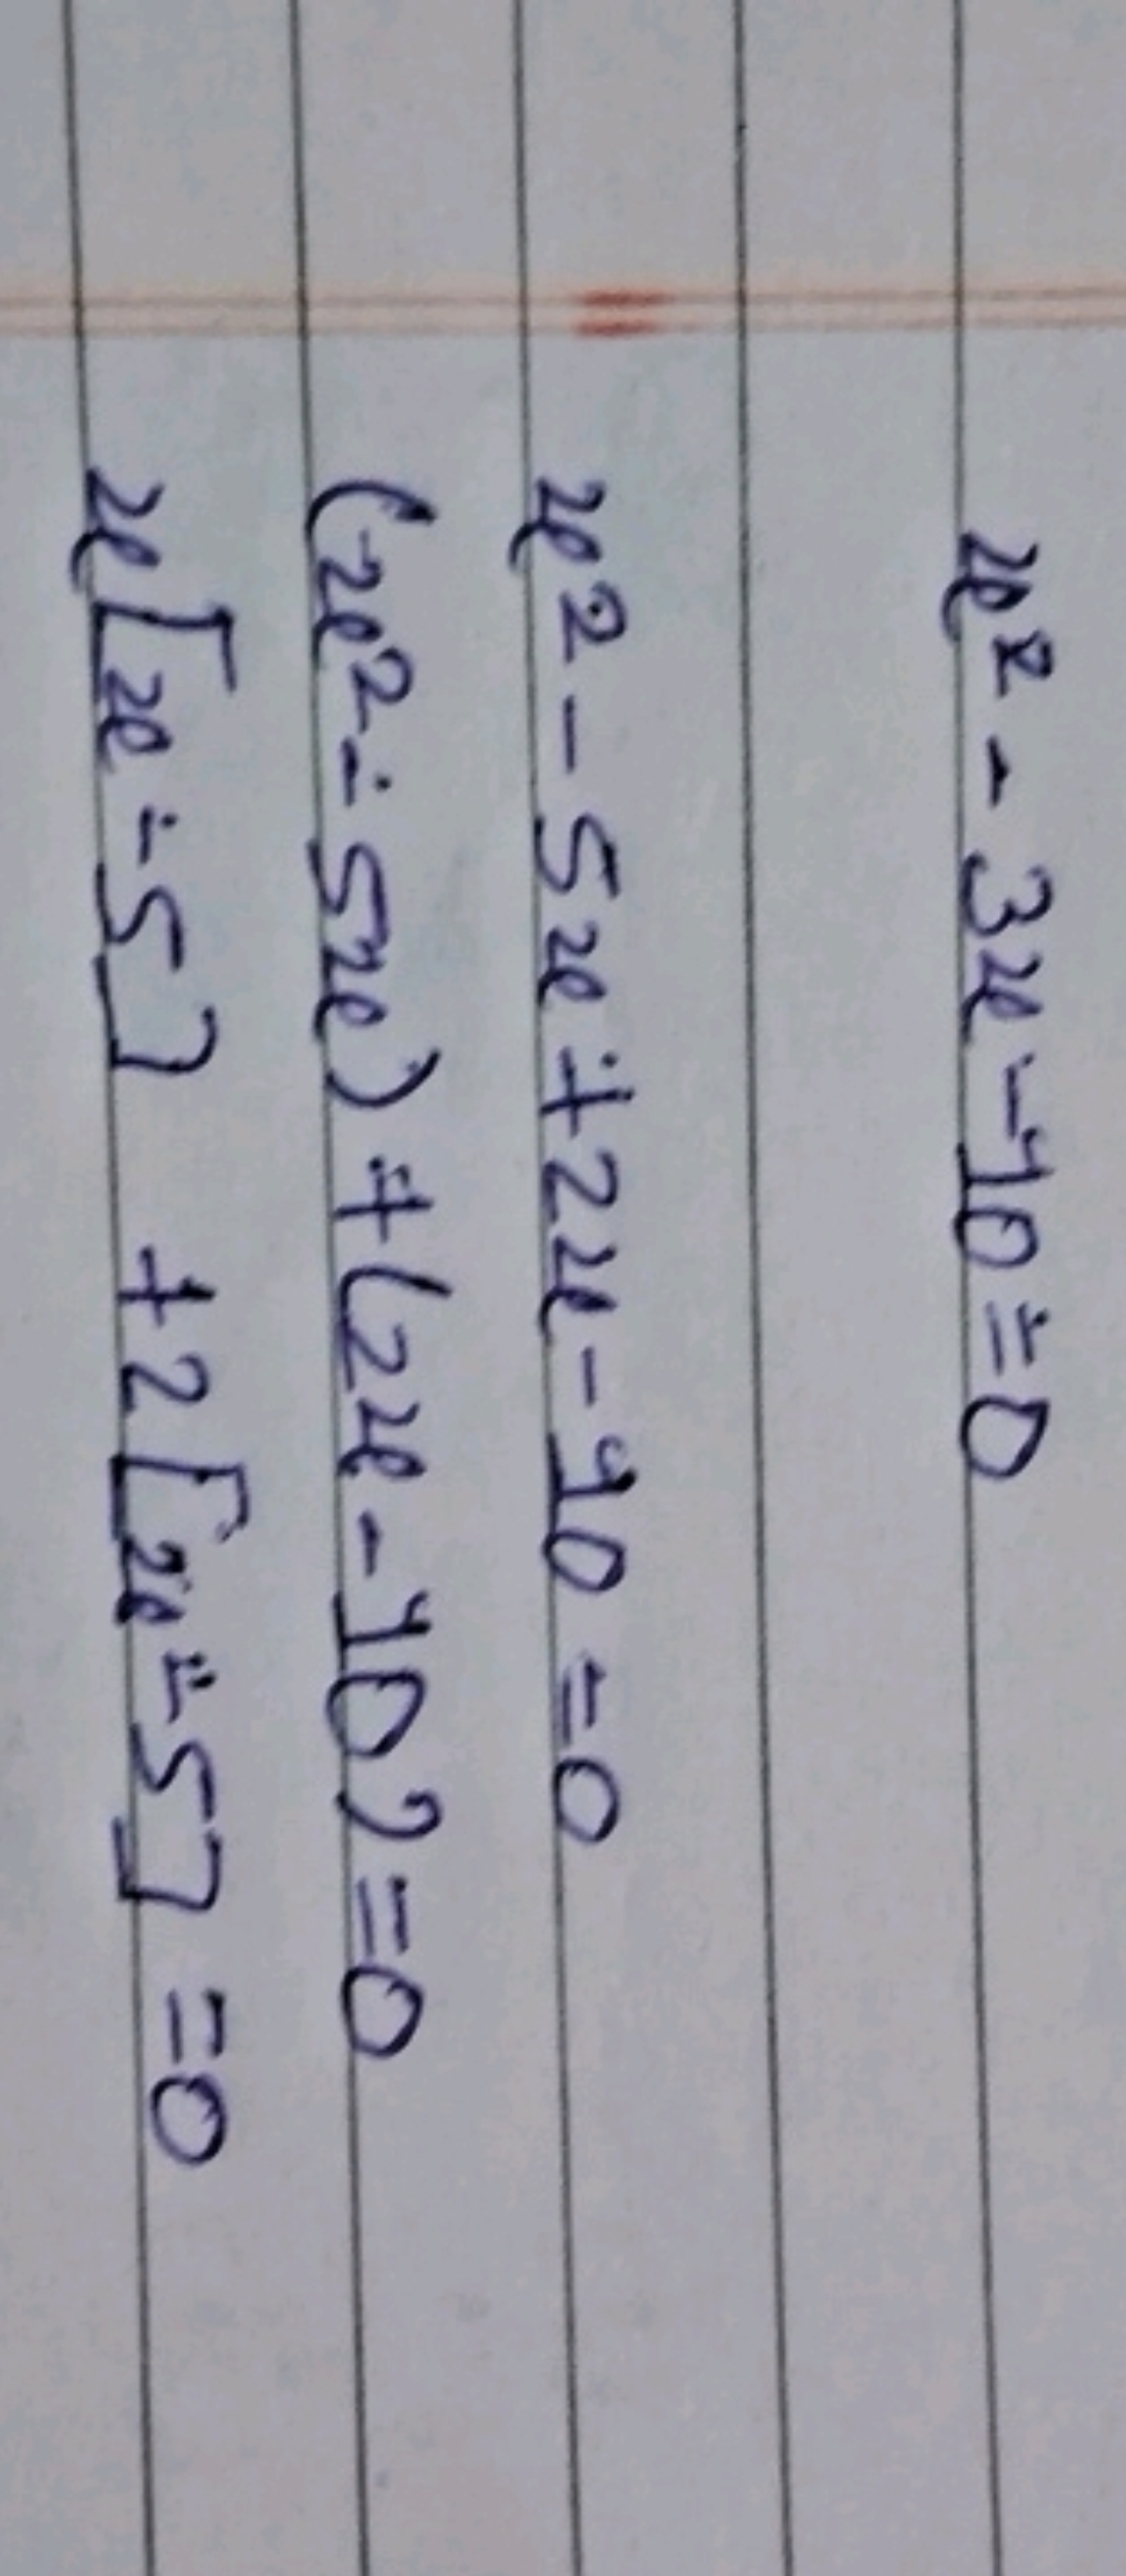 x² - 3x - 10 = 0
x² - 5x + 2x - 10 = 0
(x² - 5x) + (2x - 10) = 0
x[x - 5] + 2[x - 5] = 0